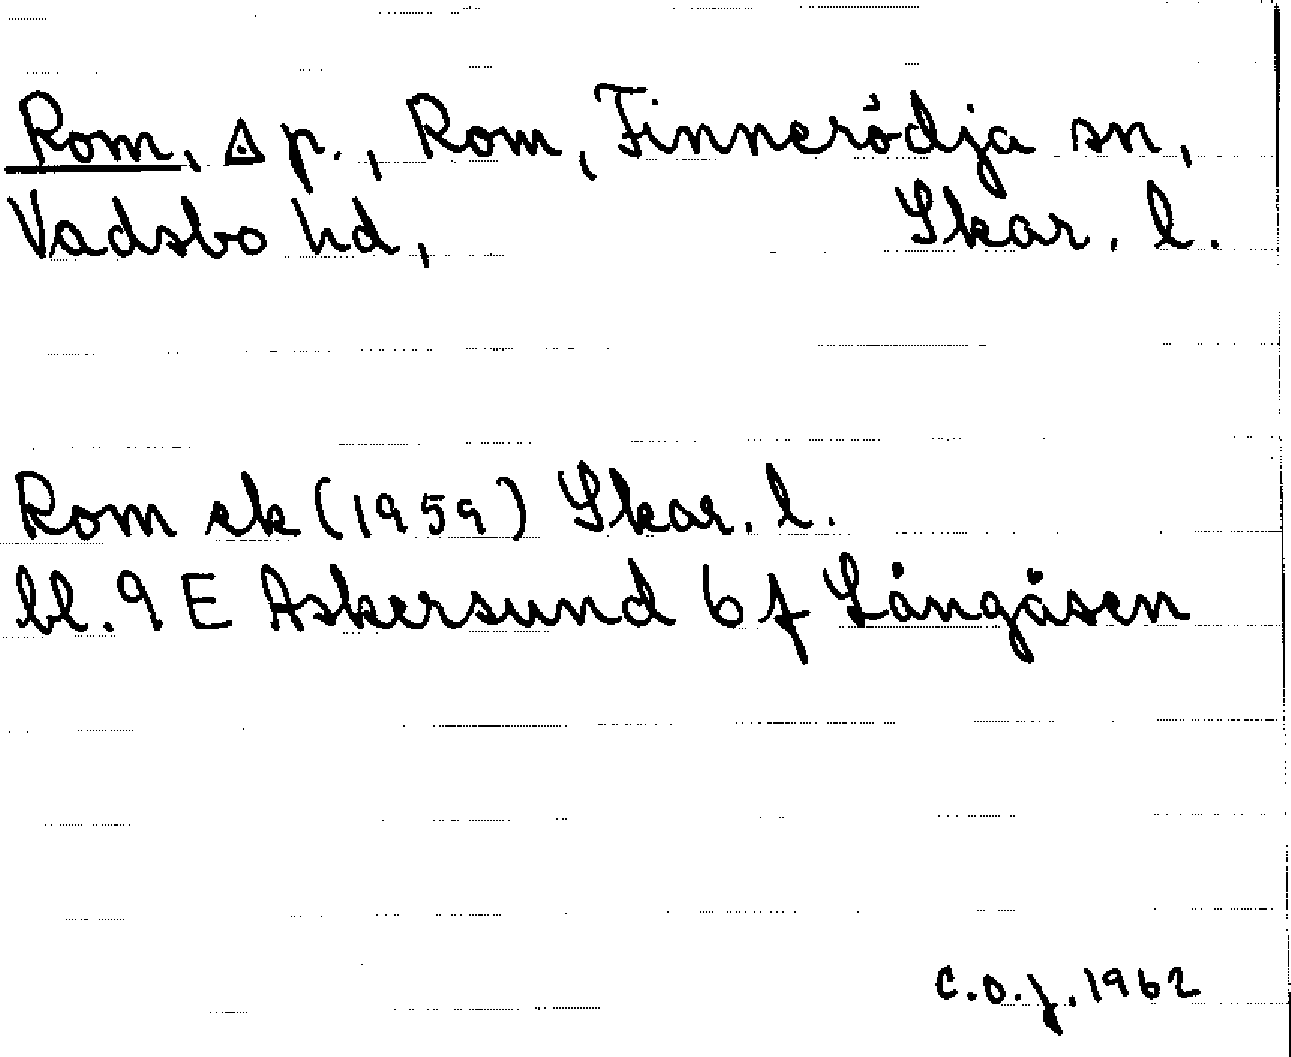 Rom, ◬ p., Rom, Finnerödja sn,
Vadsbo hd, Skar. l.
Rom ek (1959) Skar. l.
bl. 9 E Askersund 6 f Långåsen
C.O.J. 1962